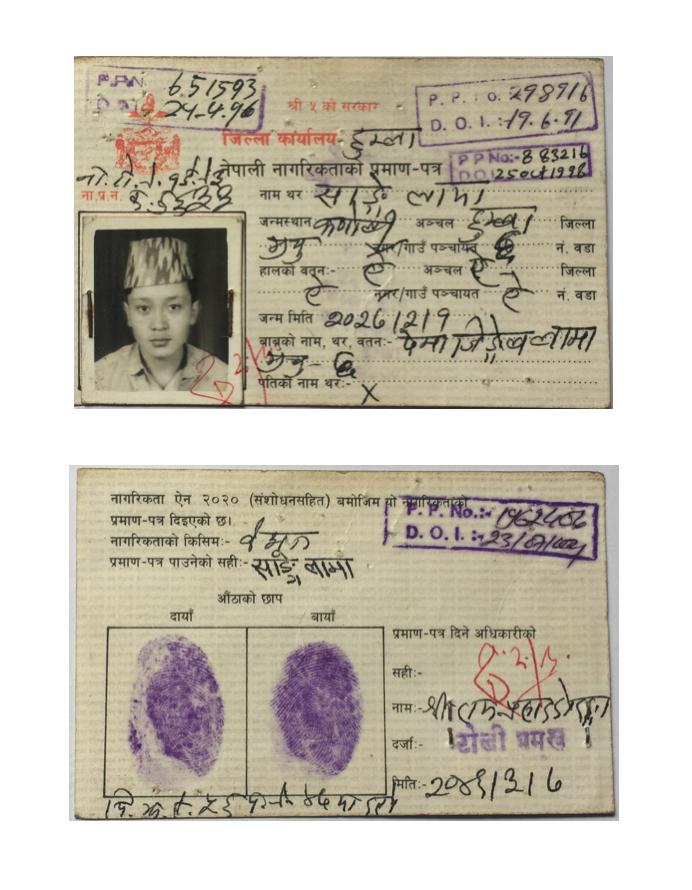 P.P.N. 651593
D.O.I. 24-4.96
P. P. : O. 298916
D. O. I. :-19.6.91
श्री ५ को सरकार
जिल्ला कार्यालय हुम्ला
P P No:- 883216
D O I 25 Oct 1998
नेपाली नागरिकताको प्रमाण-पत्र
ना.प्र.नं.
नाम थर साङ्गे लामा
जन्मस्थान कर्णाली अञ्चल हुम्ला जिल्ला
मुचु नगर/गाउँ पञ्चायत ६ नं. वडा
हालको वतन:- ऐ अञ्चल ऐ जिल्ला
ऐ नगर/गाउँ पञ्चायत ऐ नं. वडा
जन्म मिति २०२६।२।९
बाबुको नाम, थर, वतन:- पेमा लामा
मुचु - ६
पतिको नाम थर:- X
नागरिकता ऐन २०२० (संशोधनसहित) बमोजिम यो नागरिकताको
प्रमाण-पत्र दिइएको छ।
P. P. No.:-
D. O. I. :-
नागरिकताको किसिम:- वंशज
प्रमाण-पत्र पाउनेको सही:- साङ्गे लामा
औंठाको छाप
दायाँ बायाँ
प्रमाण-पत्र दिने अधिकारीको
सही:-
नाम:- श्री
दर्जा:- टोली प्रमुख
मिति:- २०४६।३।६